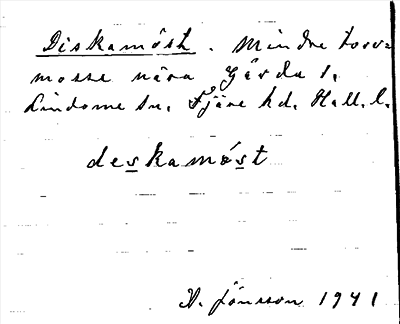 Diskamôsk. Mindre torv=
mosse nära Gärda 1,
Lindome sn, Fjäre hd, Hall. l.
deskamóst
H. Jönsson 1941